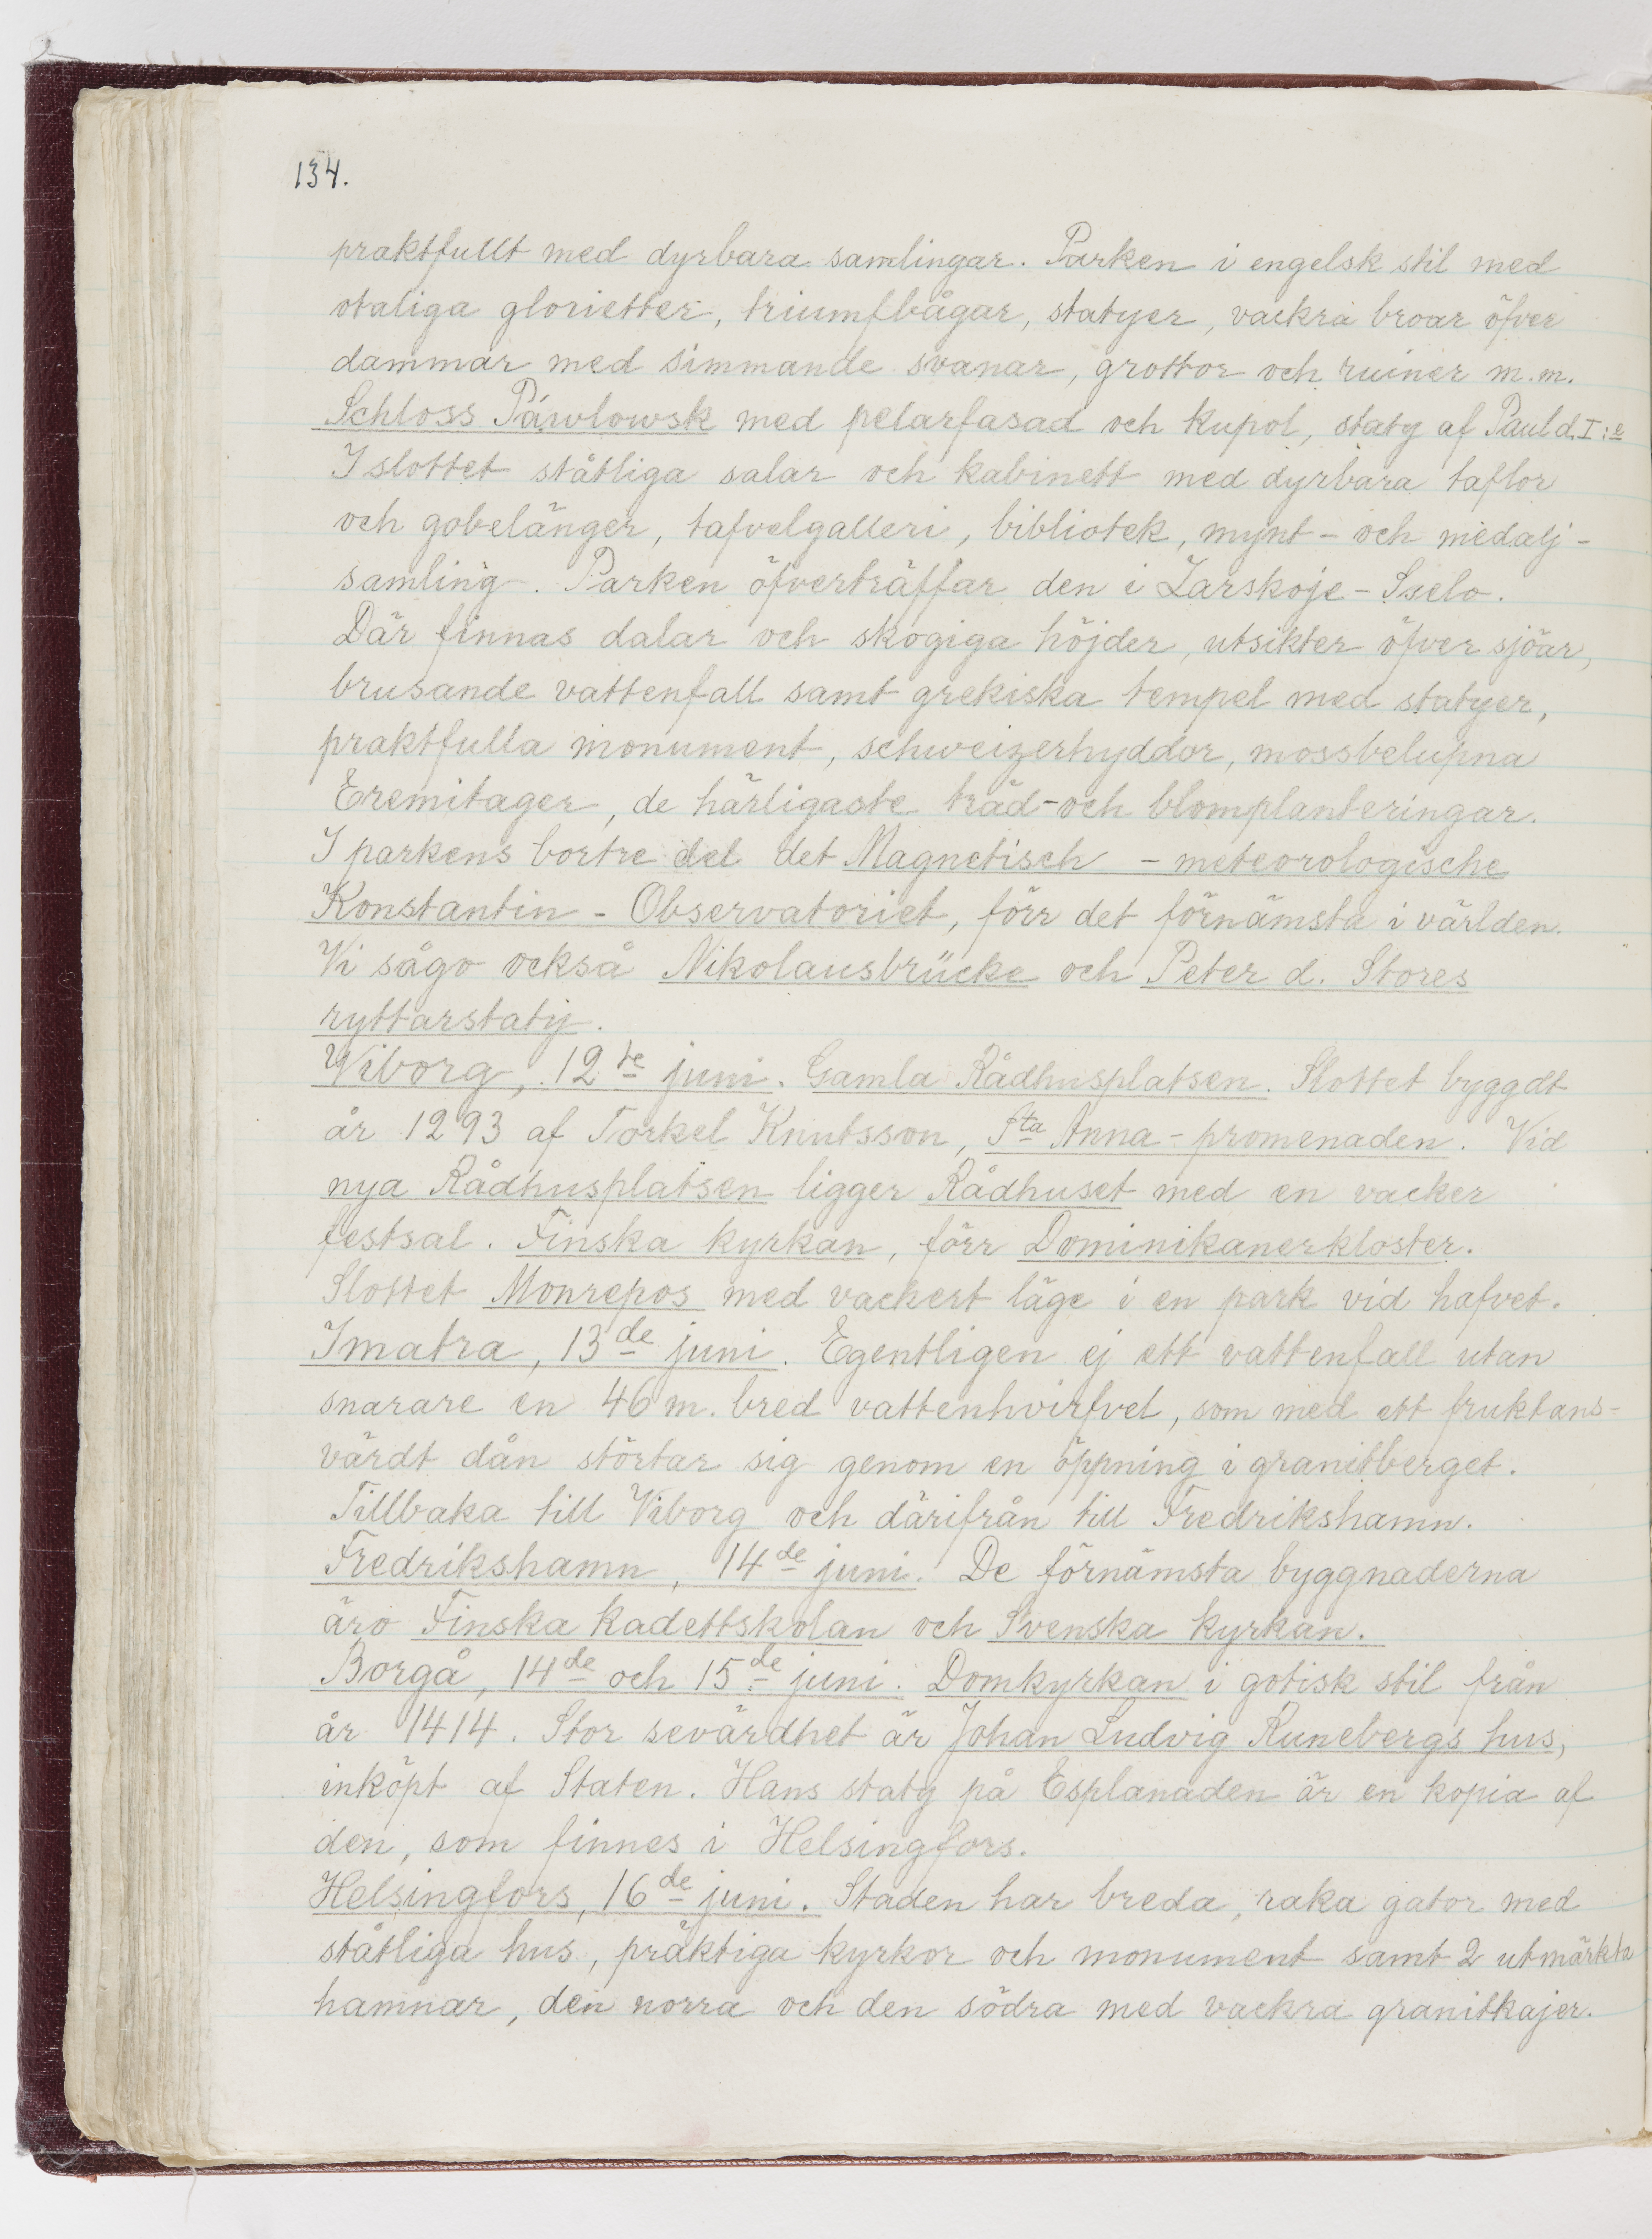 134.
praktfullt med dyrbara samlingar. Parken i engelsk stil med
otaliga glorietter, triumfbågar, statyer, vackra broar öfver
dammar med simmande svanar, grottor och ruiner m.m.
Schloss Páwlowsk med pelarfasad och kupol, staty af Paul d. I:e
I slottet ståtliga salar och kabinett med dyrbara taflor
och gobelänger, tafvelgalleri, bibliotek, mynt- och medalj-
samling. Parken öfverträffar den i Zarskoje-Sselo.
Där finnas dalar och skogiga höjder, utsikter öfver sjöar,
brusande vattenfall samt grekiska tempel med statyer,
praktfulla monument, schweizerhyddor, mossbelupna
Eremitager, de härligaste träd- och blomplanteringar.
I parkens bortre del det Magnetisch - meteorologische
Konstantin - Observatoriet, förr det förnämsta i världen.
Vi sågo också Nikolausbrücke och Peter d. Stores
ryttarstaty.
Wiborg, 12te juni. Gamla Rådhusplatsen. Slottet byggdt
år 1293 af Torkel Knutsson, Sta Anna-promenaden. Vid
nya Rådhusplatsen ligger Rådhuset med en vacker
festsal. Finska kyrkan, förr Dominikanerkloster.
Slottet Monrepos med vackert läge i en park vid hafvet.
Imatra, 13de juni. Egentligen ej ett vattenfall utan
snarare en 46 m. bred vattenhvirfvel, som med ett fruktans-
värdt dån störtar sig genom en öppning i granitberget.
Tillbaka till Viborg och därifrån till Fredrikshamn.
Fredrikshamn, 14de juni. De förnämsta byggnaderna
äro Finska Kadettskolan och Svenska kyrkan.
Borgå, 14de och 15de juni. Domkyrkan i gotisk stil från
år 1414. Stor sevärdhet är Johan Ludvig Runebergs hus,
inköpt af Staten. Hans staty på Esplanaden är en kopia af
den, som finnes i Helsingfors.
Helsingfors, 16de juni. Staden har breda, raka gator med
ståtliga hus, präktiga kyrkor och monument samt 2 utmärkta
hamnar, den norra och den södra med vackra granitkajer.